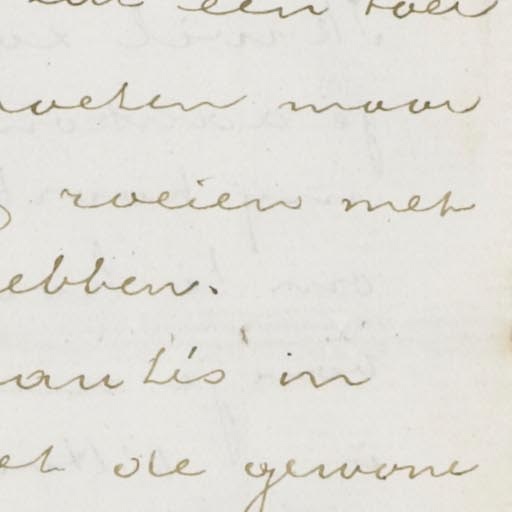 een
moeten maar
roeien met
ebben.
in
et de gewone